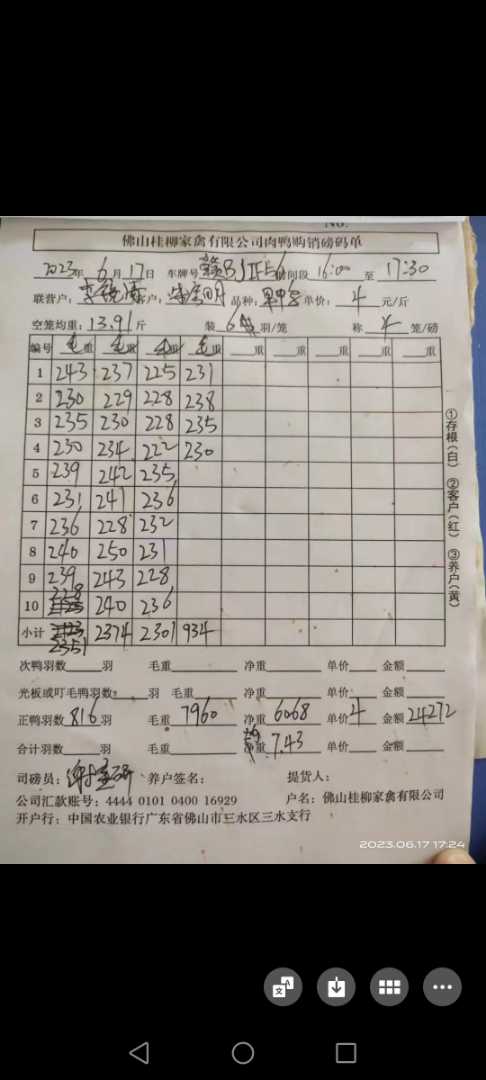 No.
佛山桂柳家禽有限公司肉鸭购销磅码单
2023年 6月17日 车牌号 时间段 16:00 至 17:30
联营户: 客户: 品种: 单价: 4 元/斤
空笼均重: 13.91 斤 装 6 羽/笼 称 4 笼/磅
编号 毛重 毛重 毛重 毛重 重 重 重 重
1 243 237 225 231
2 230 229 228 238
3 235 230 228 235
4 230 234 222 230
5 239 242 235
6 231 241 236
7 236 228 232
8 240 250 231
9 239 243 228
10 228 240 236
小计 2351 2374 2301 934
①存根(白) ②客户(红) ③养户(黄)
次鸭羽数 羽 毛重 净重 单价 金额
光板或叮毛鸭羽数: 羽 毛重 净重 单价 金额
正鸭羽数 816 羽 毛重 7960 净重 6068 单价 4 金额 24272
合计羽数 羽 毛重 净重 7.43 单价 金额
司磅员: 养户签名: 提货人:
公司汇款账号: 4444 0101 0400 16929 户名: 佛山桂柳家禽有限公司
开户行: 中国农业银行广东省佛山市三水区三水支行
2023.06.17 17:24